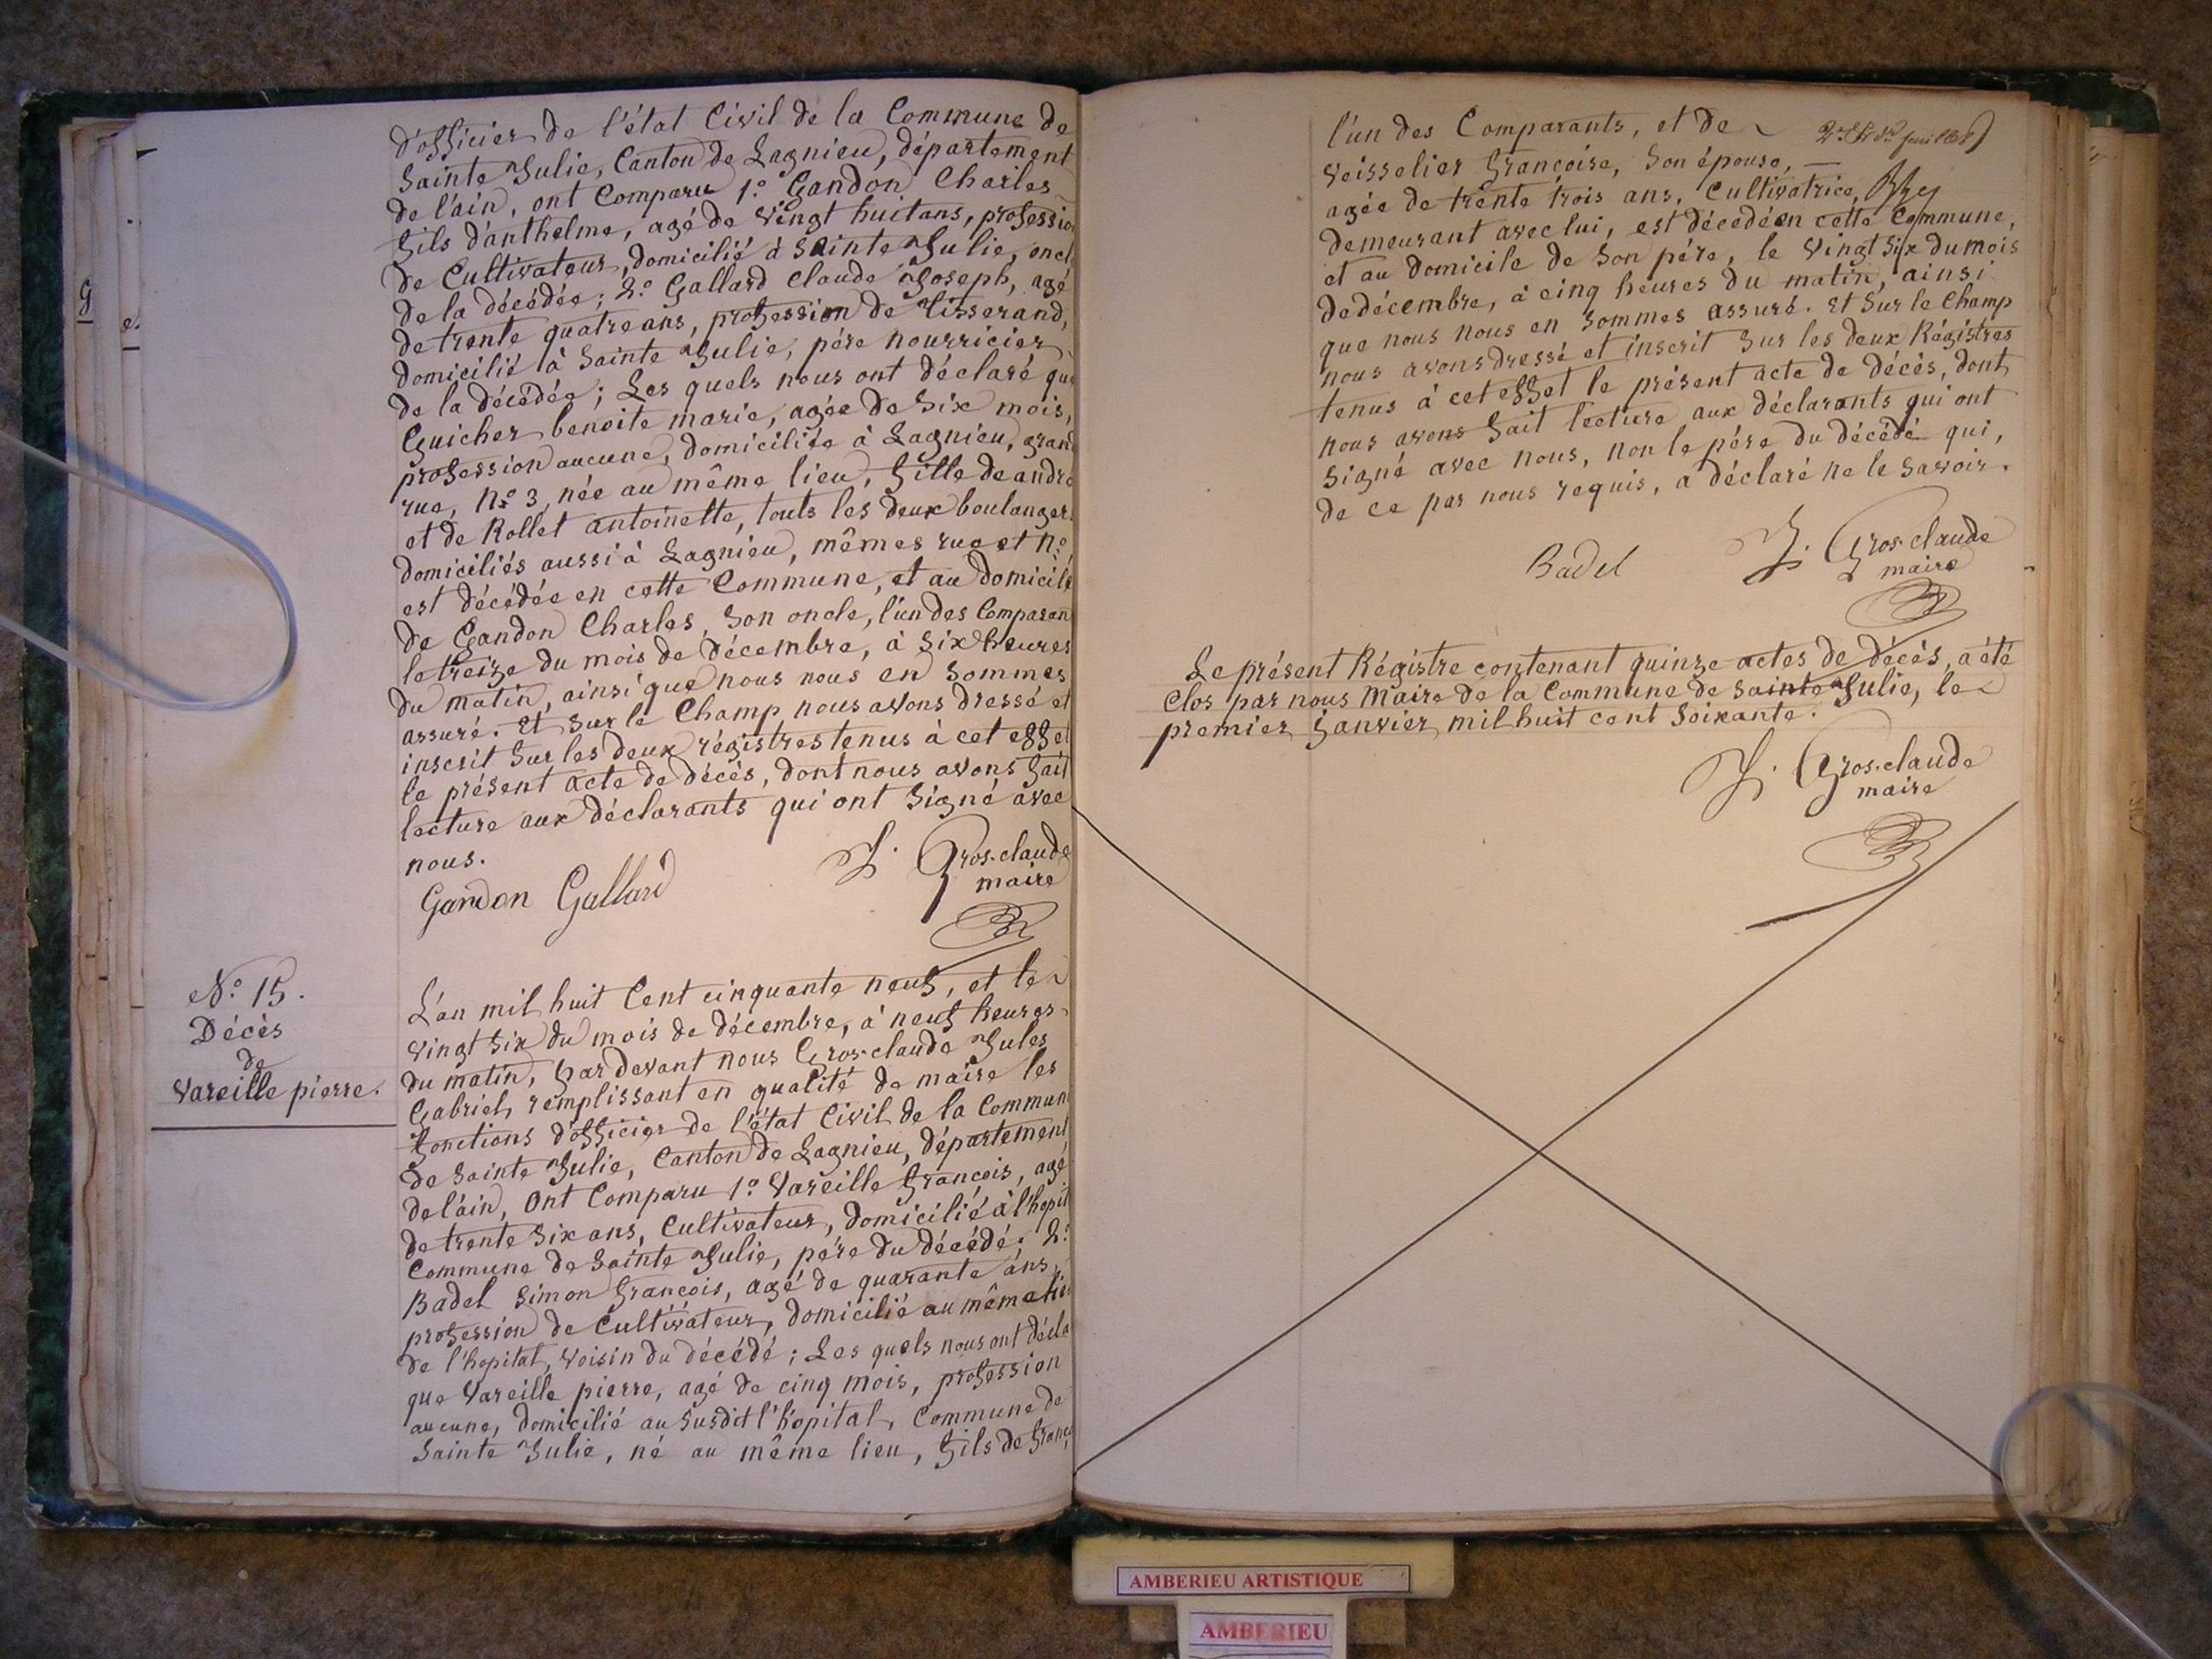 G
e.
d'officier de l'état Civil de la Commune de
Sainte Julie, Canton de Lagnieu, département
de l'ain, ont Comparu 1.º Gandon Charles
fils d'anthelme, agé de vingt huit ans, professio
de Cultivateur, domicilié à Sainte Julie, oncl
de la décédée; 2.º Gallard Claude Joseph, agé
de trente quatre ans, profession de tisserand,
domicilié à Sainte Julie, pére nourricier
de la décédée; Les quels nous ont déclaré que
Guicher benoite marie, agée de Six mois,
profession aucune, domiciliée à Lagnieu, grand
rue, Nº 3, née au même lieu, fille de andré
et de Rollet antoinette, touts les deux boulanger
domiciliés aussi à Lagnieu, mêmes rue et Nº
est décédée en cette Commune, et au domicile
de Gandon Charles, Son oncle, l'un des Comparan
le treize du mois de décembre, à Six heures
du matin, ainsi que nous nous en Sommes
assuré. Et Sur le Champ nous avons dressé et
inscrit Sur les deux régistres tenus à cet effet
le présent acte de décès, dont nous avons fait
lecture aux déclarants qui ont Signé avec
nous.
Gandon Gallard J. Gros-claude
maire
Nº 15.
Décès
de
Vareille pierre.
L'an mil huit Cent cinquante neuf, et le
vingt Six du mois de décembre, à neuf heures
du matin, par devant nous Gros-claude Jules
Gabriel, remplissant en qualité de maire les
fonctions d'officier de l'état Civil de la Commun
de Sainte Julie, Canton de Lagnieu, département
de l'ain, Ont Comparu 1.º Vareille françois, agé
de trente Six ans, Cultivateur, domicilié à l'hopit
Commune de Sainte Julie, pére du décédé; 2.º
Badel Simon françois, agé de quarante ans,
profession de Cultivateur, domicilié au même lie
de l'hopital, voisin du décédé; Les quels nous ont décla
que Vareille pierre, agé de cinq mois, profession
aucune, domicilié au Susdit l'hopital, Commune de
Sainte Julie, né au même lieu, fils de franç
l'un des Comparants, et de
Veisselier françoise, Son épouse, —
agée de trente trois ans, Cultivatrice,
demeurant avec lui, est décédé en cette Commune,
et au domicile de Son pére, le vingt Six du mois
de décembre, à cinq heures du matin, ainsi
que nous nous en Sommes assuré. Et Sur le Champ
nous avons dressé et inscrit Sur les deux Régistres
tenus à cet effet le présent acte de décès, dont
nous avons fait lecture aux déclarants qui ont
Signé avec nous, non le pére du décédé qui,
de ce par nous requis, a déclaré ne le Savoir.
Badel J. Gros-claude
maire
Le présent Régistre contenant quinze actes de décès, a été
Clos par nous Maire de la Commune de Sainte Julie, le
premier janvier mil huit cent Soixante.
J. Gros-claude
maire
AMBERIEU ARTISTIQUE
AMBERIEU